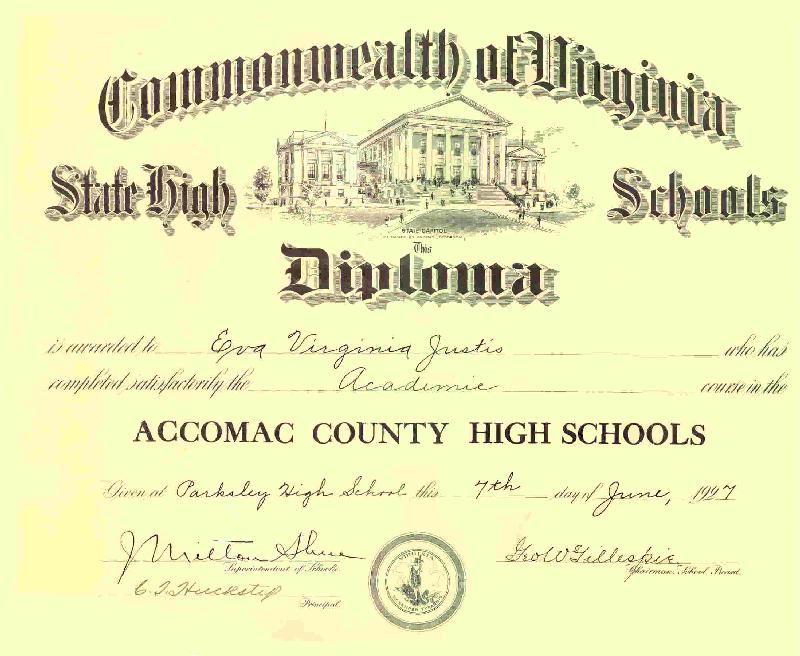 Commonwealth of Virginia
State High Schools
STATE CAPITOL
This
Diploma
is awarded to Eva Virginia Justis who has
completed satisfactorily the Academic course in the
ACCOMAC COUNTY HIGH SCHOOLS
Given at Parksley High School this 7th day of June, 1927
J Milton Shue
Superintendent of Schools.
Geo W Gillespie
Chairman, School Board.
Principal.